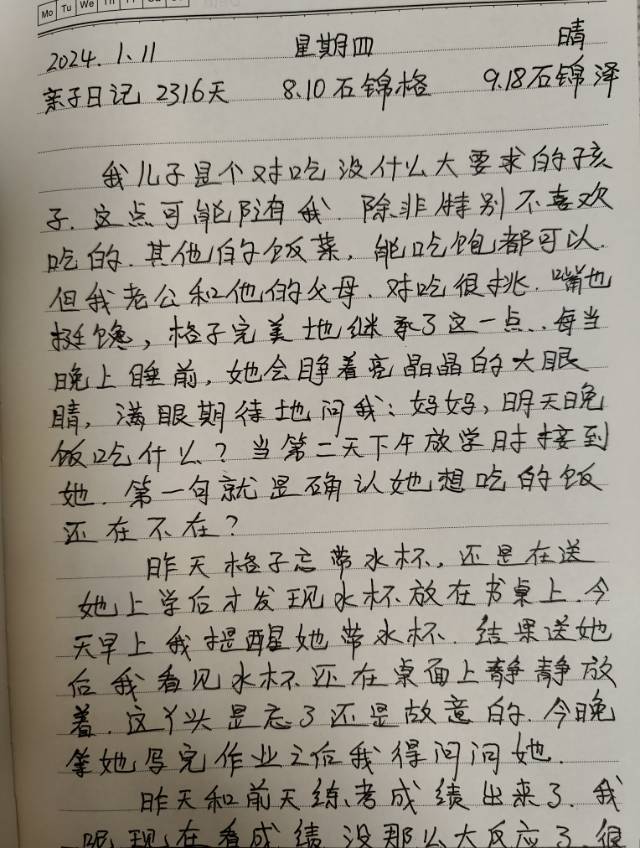 Mo Tu We Th Fr Sa Su
2024.1.11 星期四 晴
亲子日记 2316天 8.10石锦格 9.18石锦泽
我儿子是个对吃没什么大要求的孩
子.这点可能随我.除非特别不喜欢
吃的.其他的饭菜,能吃饱都可以.
但我老公和他的父母.对吃很挑.嘴也
挺馋,格子完美地继承了这一点..每当
晚上睡前,她会睁着亮晶晶的大眼
睛,满眼期待地问我:妈妈,明天晚
饭吃什么?当第二天下午放学时接到
她.第一句就是确认她想吃的饭
还在不在?
昨天格子忘带水杯,还是在送
她上学后才发现水杯放在书桌上.今
天早上我提醒她带水杯.结果送她
后我看见水杯还在桌面上静静放
着.这丫头是忘了还是故意的.今晚
等她写完作业之后我得问问她.
昨天和前天练考成绩出来了.我
呢现在看成绩没那么大反应了.很